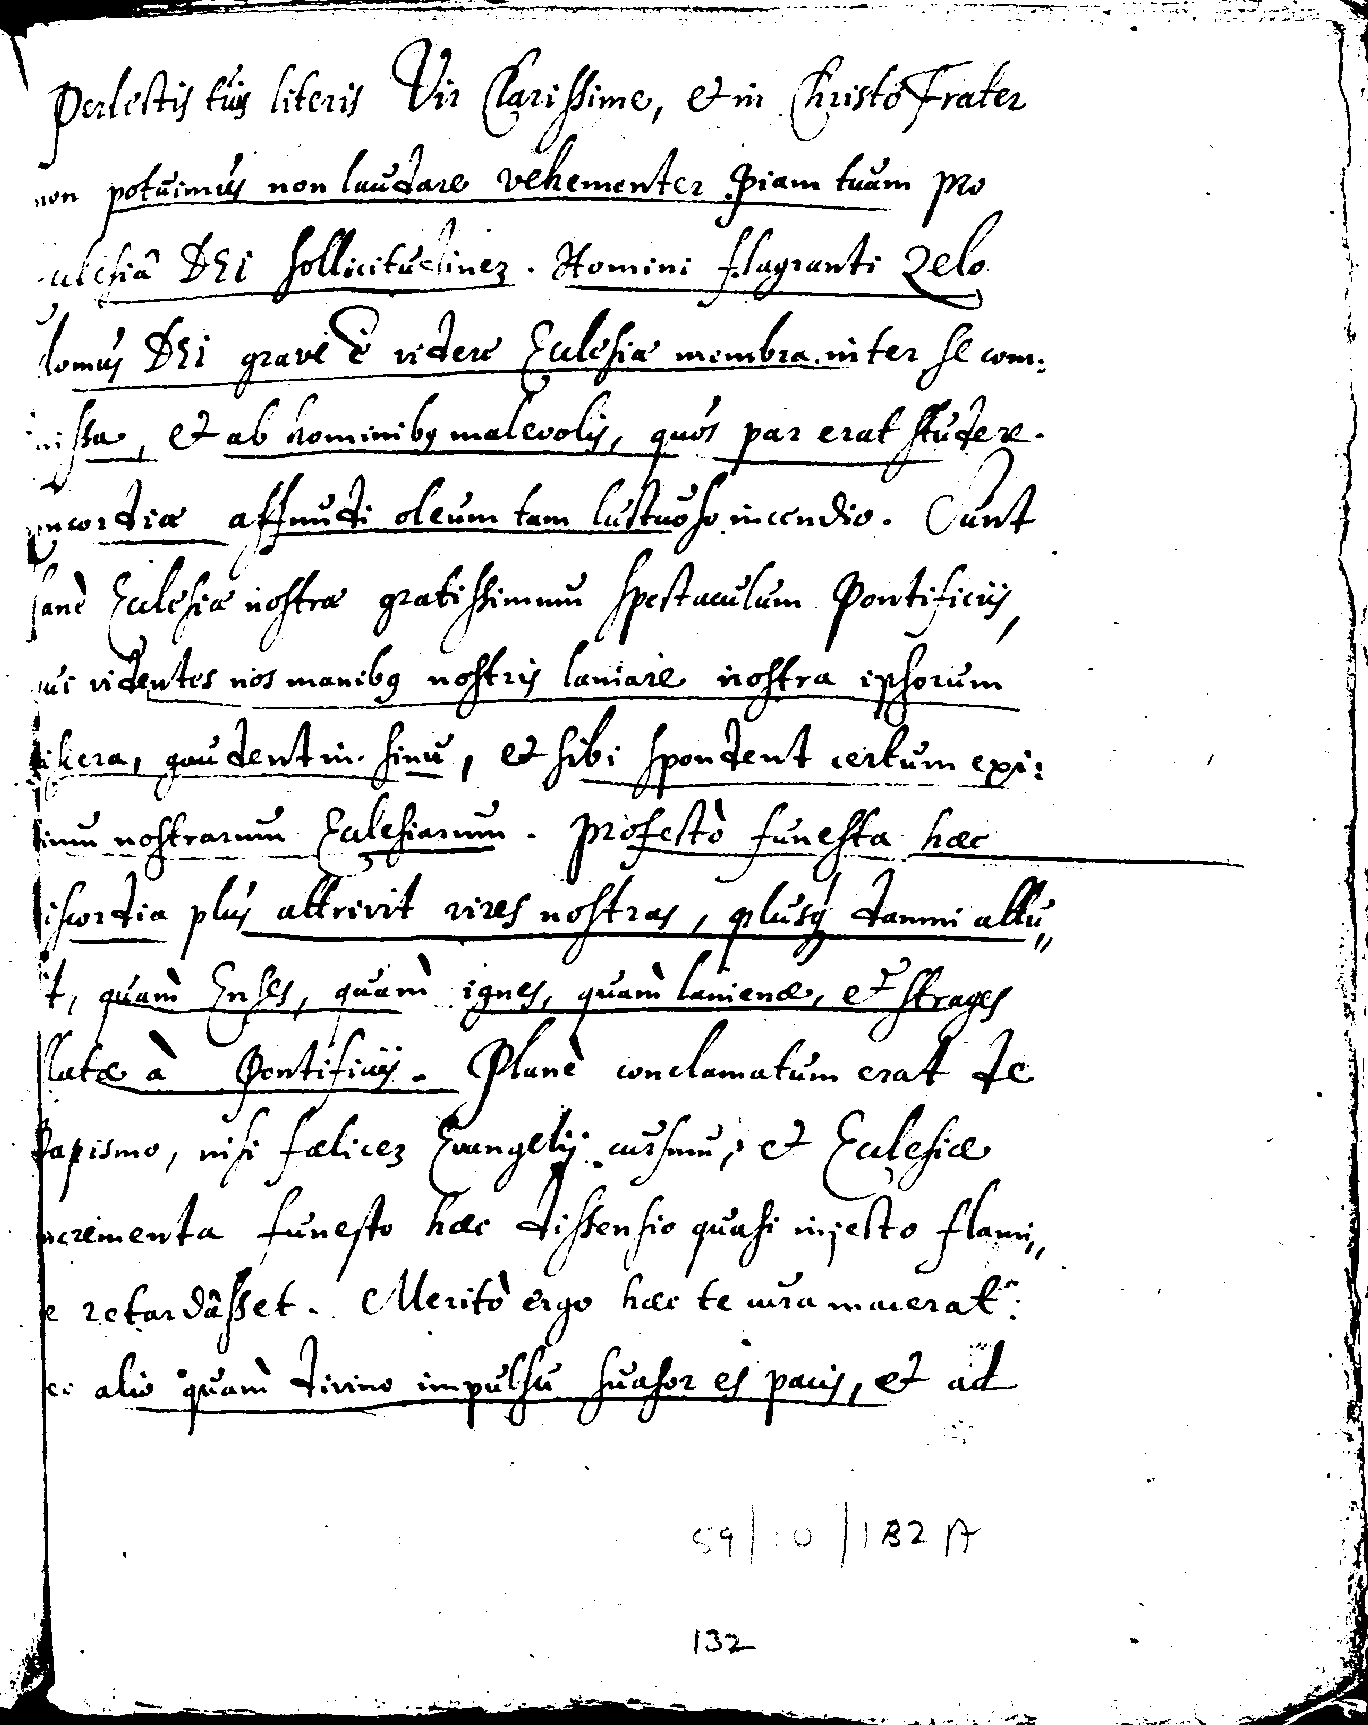 Perlectis tuis literis Vir Clarissime, et in Christo Frater
non potuimus non laudare vehementer piam tuam pro
cclesiâ DEI sollicitudinez. Homini flagranti zelo
domus DEI grave è videre Ecclesiæ membra inter se com:
missa, et ab hominibq malevolis, quos par erat studere
oncordiæ affundi oleum tam luctuoso incendio. Sunt
sanè Ecclesiæ nostræ gratissimum spectaculum Pontificijs,
qui videntes nos manibq nostris laniare nostra ipsorum
viscera, gaudent in sinu, et sibi spondent certum exi:
tium nostrarum Ecclesiarum. Profectò funesta hæc
iscordia plus attrivit vires nostras, plusq damni attu„
it, quàm Enses, quàm ignes, quàm lanienæ, et strages
llatæ à Pontificijs. Planè conclamatum erat de
Papismo, nisi fœlicez Evangelij cursum, et Ecclesiæ
ncrementa funesto hæc dissensio quasi injecto flami„
e retardâsset. Meritò ergo hæc te cura macerat:
ec alio quàm divino impulsu suasor es pacis, et ad
59/10/132 A
132